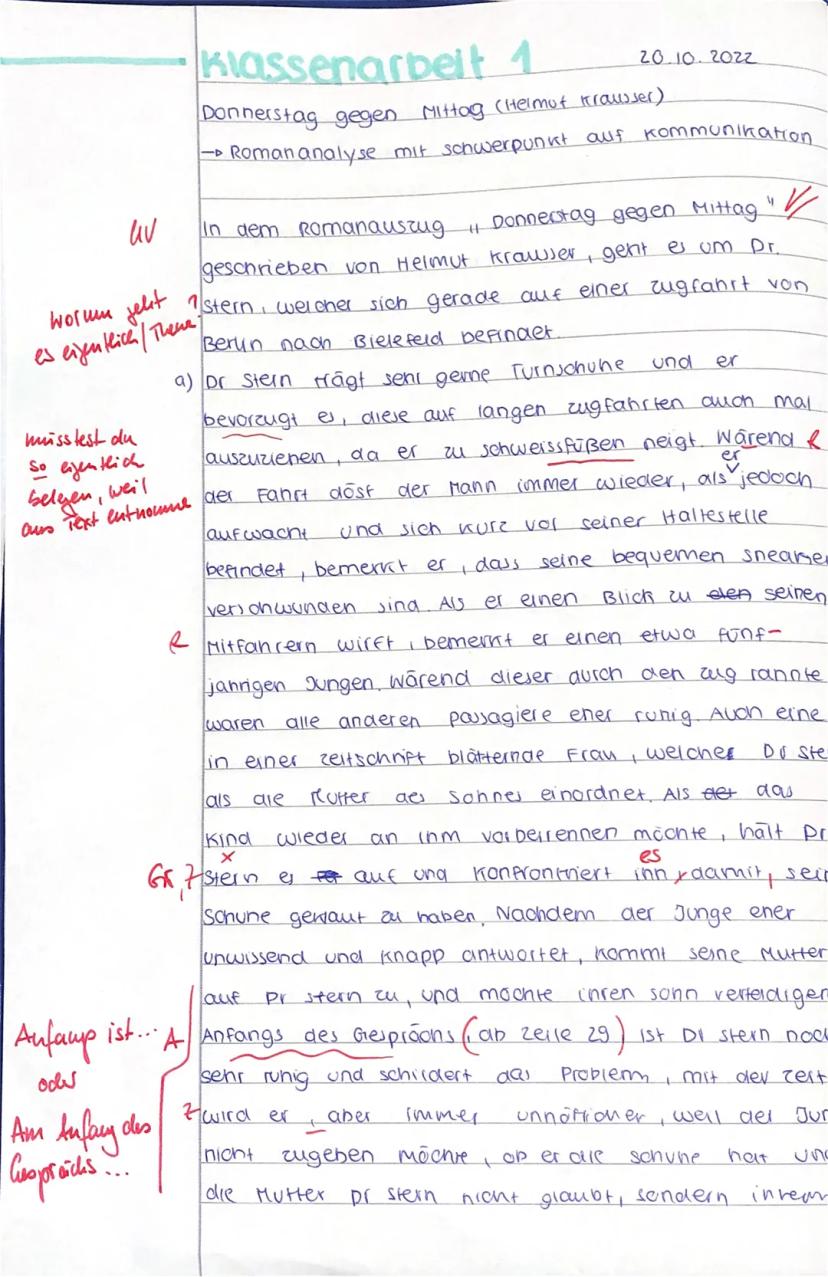 Klassenarbeit 1
20.10.2022
Donnerstag gegen Mittag (Helmut Krausser)
→ Romananalyse mit schwerpunkt auf Kommunikation
UV
In dem Romanauszug „Donnerstag gegen Mittag"
geschrieben von Helmut Krausser, geht es um Dr.
Worum geht ?
es eigentlich / Thema
Stern, welcher sich gerade auf einer Zugfahrt von
Berlin nach Bielefeld befindet.
a) Dr Stern trägt sehr gerne Turnschuhe und er
bevorzugt es, diese auf langen zugfahrten auch mal
müsstest du
so eigentlich
belegen, weil
aus Text entnommen
auszuziehen, da er zu schweissfüßen neigt. Wärend R
der Fahrt döst der Mann immer wieder, als er jedoch
aufwacht und sich kurz vor seiner Haltestelle
befindet, bemerkt er, dass seine bequemen sneaker
verschwunden sind. Als er einen Blick zu den seinen
R
Mitfahrern wirft, bemerkt er einen etwa fünf-
jährigen Jungen. Wärend dieser durch den zug rannte
waren alle anderen passagiere eher ruhig. Auch eine
in einer zeitschrift blätternde Frau, welche Dr Ste
als die Mutter des Sohnes einordnet. Als der das
Kind wieder an ihm vorbeirennen möchte, hält Dr
Gr, Z
x
es
Stern es auf und Konfrontiert ihn, damit, sein
Schuhe geklaut zu haben. Nachdem der Junge eher
unwissend und knapp antwortet, kommt seine Mutter
auf Dr stern zu, und möchte ihren sohn verteidigen
Anfang ist...
oder
Am Anfang des
Gesprächs...
A
Anfangs des Gesprächs (ab zeile 29) ist Dr stern noch
sehr ruhig und schildert das Problem, mit der zeit
Z
wird er, aber immer unhöflicher, weil der Jun
nicht zugeben möchte, ob er die schuhe hat und
die Mutter Dr stern nicht glaubt, sondern ihrem